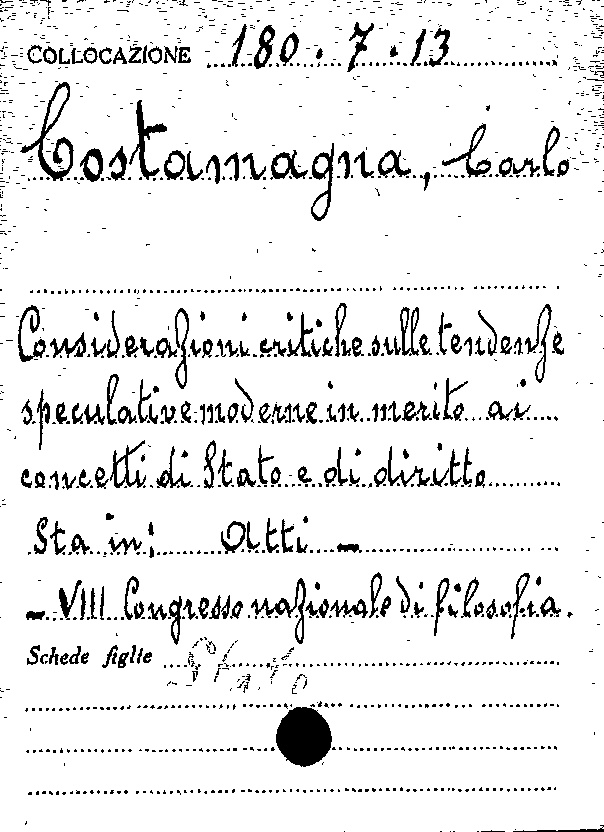 COLLOCAZIONE 180.7.13
Costamagna, Carlo
Considerazioni critiche sulle tendenze
speculative moderne in merito ai
concetti di Stato e di diritto
Sta in: Atti -
- VIII Congresso nazionale di filosofia.
Schede figlie Stato